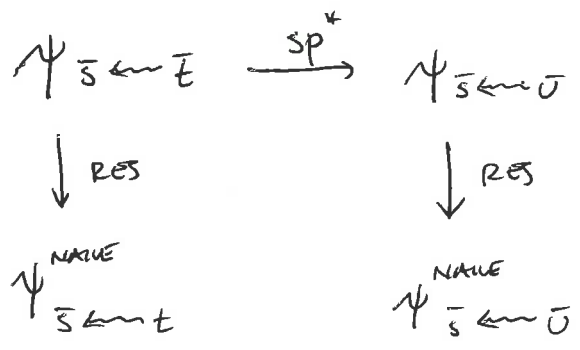 sp*
ψ s̄ ⇜ t̄ ⟶ ψ s̄ ⇜ ū
↓ RES ↓ RES
ψ^NAIVE s̄ ⇜ t ψ^NAIVE s̄ ⇜ ū